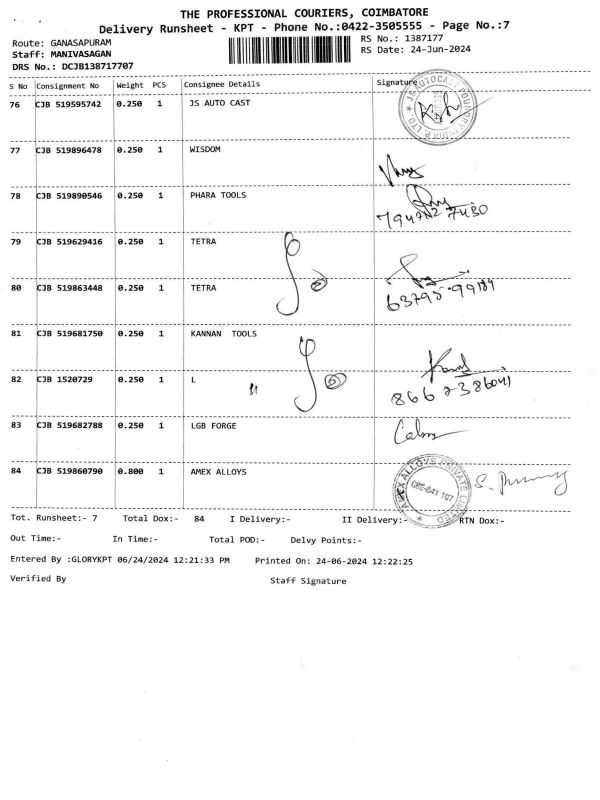 THE PROFESSIONAL COURIERS, COIMBATORE
Delivery Runsheet - KPT - Phone No.:0422-3505555 - Page No.:7
Route: GANASAPURAM
RS No.: 1387177
Staff: MANIVASAGAN
RS Date: 24-Jun-2024
DRS No.: DCJB138717707
S No Consignment No Weight PCS Consignee Details Signature
76 CJB 519595742 0.250 1 JS AUTO CAST
77 CJB 519896478 0.250 1 WISDOM
78 CJB 519890546 0.250 1 PHARA TOOLS
79 CJB 519629416 0.250 1 TETRA
80 CJB 519863448 0.250 1 TETRA
81 CJB 519681750 0.250 1 KANNAN TOOLS
82 CJB 1520729 0.250 1 L
83 CJB 519682788 0.250 1 LGB FORGE
84 CJB 519860790 0.800 1 AMEX ALLOYS
AMEX ALLOYS PRIVATE LIMITED
CBE-641 107
Tot. Runsheet:- 7 Total Dox:- 84 I Delivery:- II Delivery:- RTN Dox:-
Out Time:- In Time:- Total POD:- Delvy Points:-
Entered By :GLORYKPT 06/24/2024 12:21:33 PM Printed On: 24-06-2024 12:22:25
Verified By Staff Signature